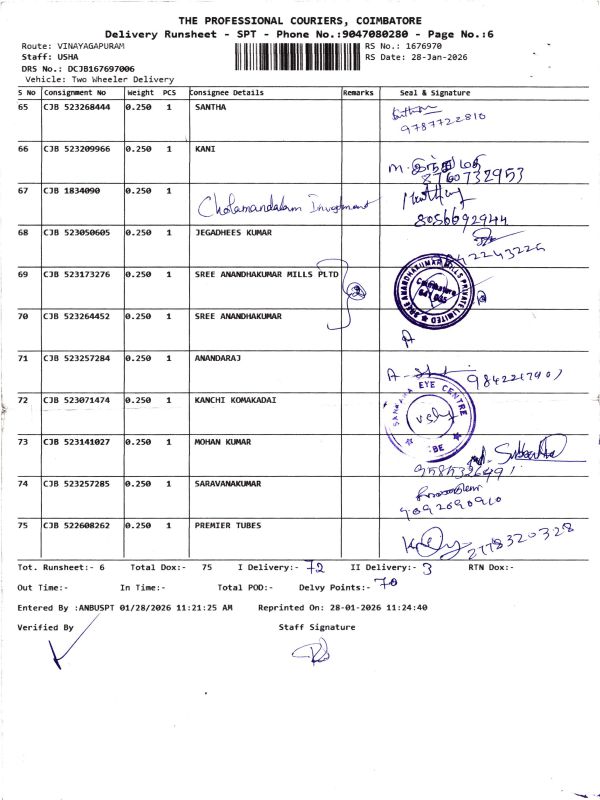 THE PROFESSIONAL COURIERS, COIMBATORE
Delivery Runsheet - SPT - Phone No.:9047080280 - Page No.:6
Route: VINAYAGAPURAM RS No.: 1676970
Staff: USHA RS Date: 28-Jan-2026
DRS No.: DCJB167697006
Vehicle: Two Wheeler Delivery
S No Consignment No Weight PCS Consignee Details Remarks Seal & Signature
65 CJB 523268444 0.250 1 SANTHA
9787722810
66 CJB 523209966 0.250 1 KANI
8760732953
67 CJB 1834090 0.250 1 Cholamandalam Investment
8056692944
68 CJB 523050605 0.250 1 JEGADHEES KUMAR
69 CJB 523173276 0.250 1 SREE ANANDHAKUMAR MILLS PLTD
SREE ANANDHAKUMAR MILLS PRIVATE LIMITED
Coimbatore
641 035
70 CJB 523264452 0.250 1 SREE ANANDHAKUMAR
71 CJB 523257284 0.250 1 ANANDARAJ
9842217907
72 CJB 523071474 0.250 1 KANCHI KOMAKADAI
SANKARA EYE CENTRE
CBE
73 CJB 523141027 0.250 1 MOHAN KUMAR
9585326491
74 CJB 523257285 0.250 1 SARAVANAKUMAR
9092690910
75 CJB 522608262 0.250 1 PREMIER TUBES
Tot. Runsheet:- 6 Total Dox:- 75 I Delivery:- 72 II Delivery:- 3 RTN Dox:-
Out Time:- In Time:- Total POD:- Delvy Points:- 70
Entered By :ANBUSPT 01/28/2026 11:21:25 AM Reprinted On: 28-01-2026 11:24:40
Verified By Staff Signature